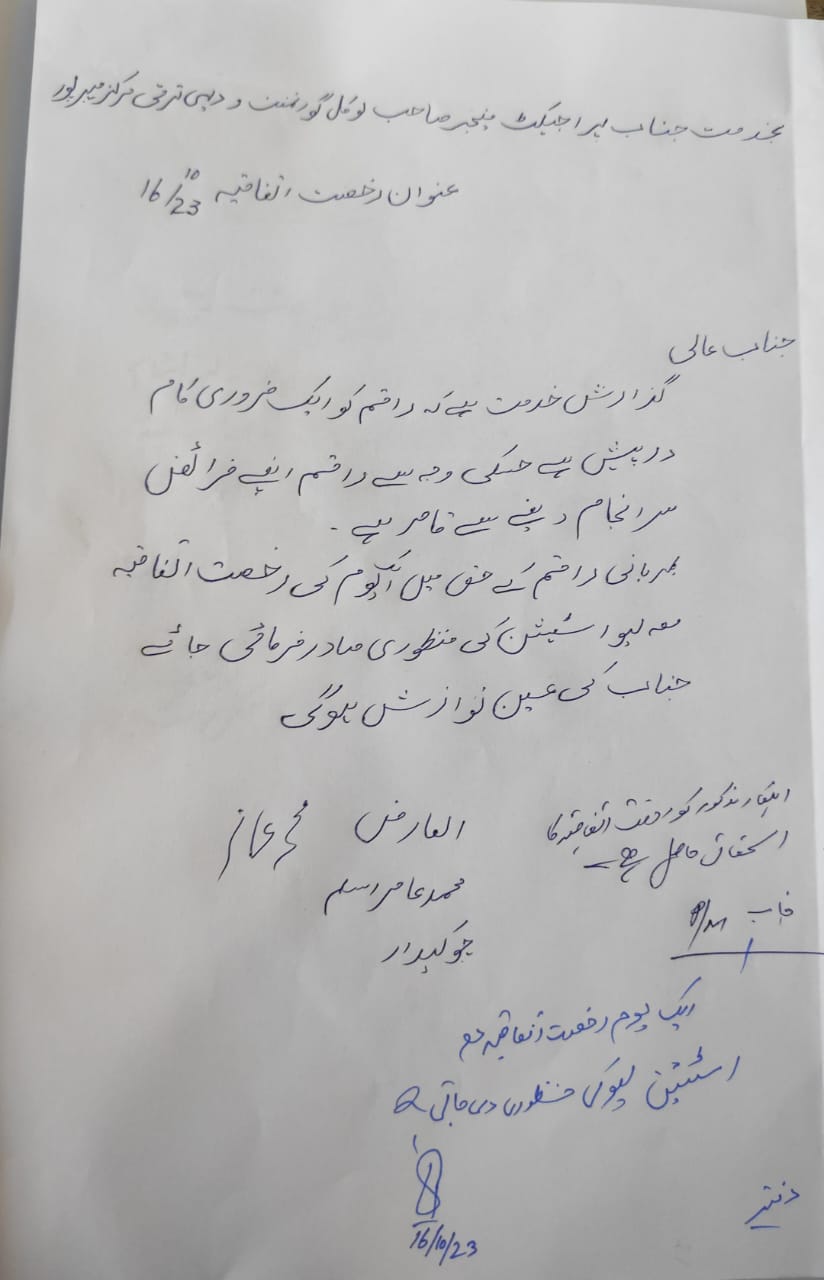 بخدمت جناب پراجیکٹ منیجر صاحب لوکل گورنمنٹ و دیہی ترقی مرکز میرپور
عنوان رخصت اتفاقیہ 16/10/23
جناب عالی
گذارش خدمت ہے کہ راقم کو ایک ضروری کام
درپیش ہے جسکی وجہ سے راقم اپنے فرائض
سرانجام دینے سے قاصر ہے ۔
مہربانی راقم کے حق میں ایک یوم کی رخصت اتفاقیہ
معہ لیو اسٹیشن کی منظوری صادر فرمائی جائے
جناب کی عین نوازش ہوگی
العارض
محمد عامر اسلم
چوکیدار
اہلکار مذکور کو رخصت اتفاقیہ کا
استحقاق حاصل ہے
ایک یوم رخصت اتفاقیہ مع
اسٹیشن لیو کی منظوری دی جاتی ہے
16/10/23
دفتر